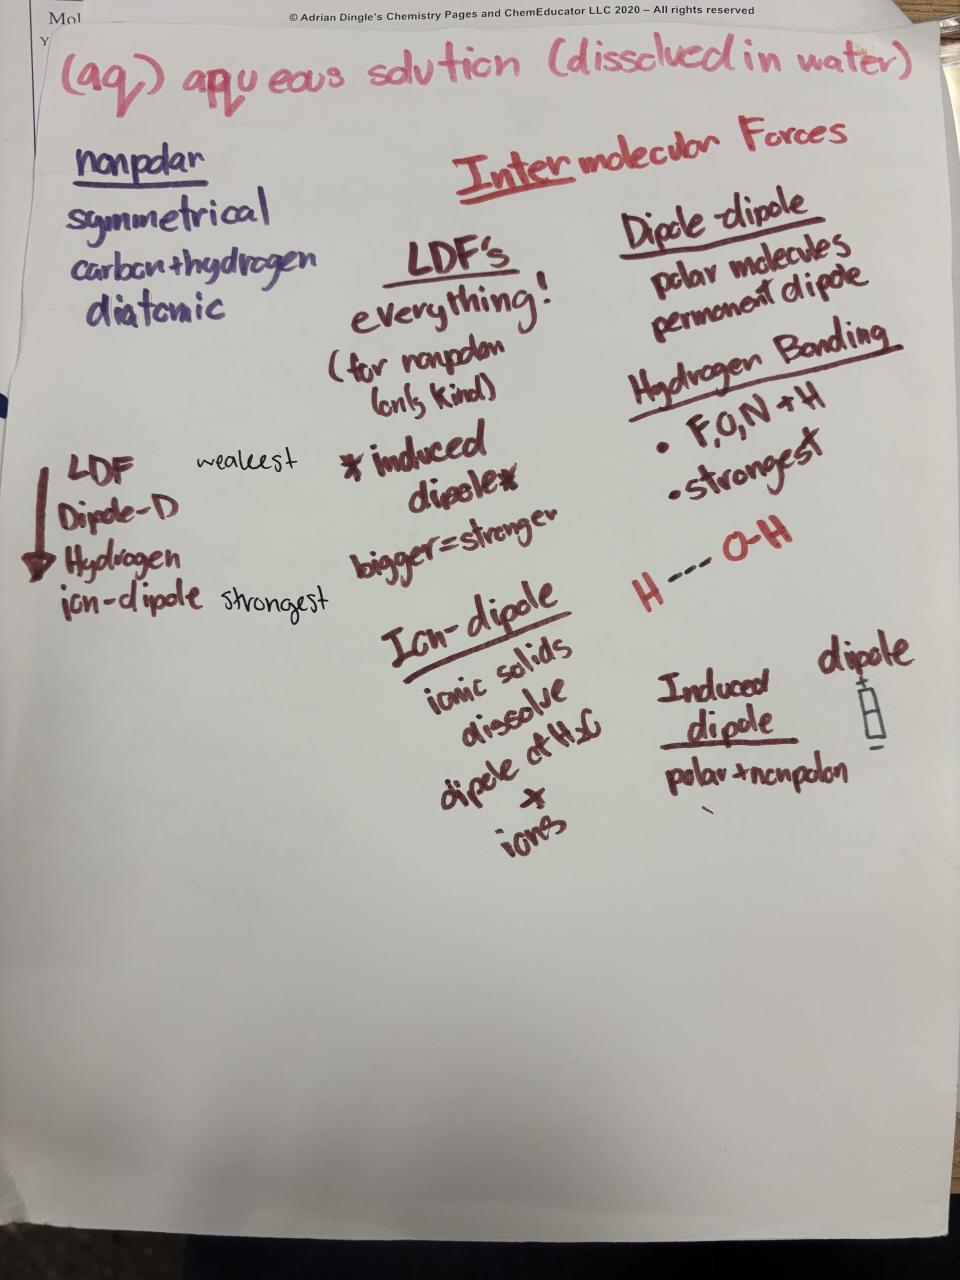 Mol
© Adrian Dingle's Chemistry Pages and ChemEducator LLC 2020 – All rights reserved
Y
(aq) aqueous solution (dissolved in water)
nonpolar
symmetrical
carbon+hydrogen
diatomic
Intermolecular Forces
LDF's
everything!
(for nonpolar
(only kind)
*induced
dipole*
bigger=stronger
Dipole-dipole
polar molecules
permanent dipole
Hydrogen Bonding
• F,O,N+H
•strongest
H --- O-H
LDF weakest
Dipole-D
Hydrogen
ion-dipole strongest
Ion-dipole
ionic solids
dissolve
dipole of H2O
ions
Induced
dipole
polar+nonpolar
dipole
+
−